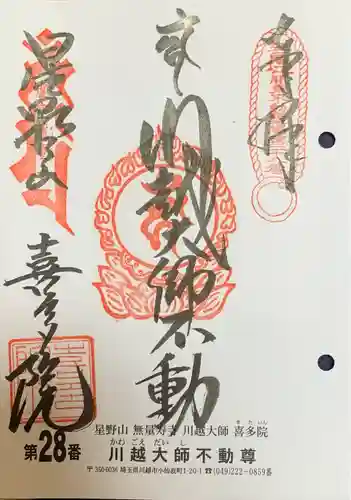 奉拝
川越大師不動
星野山
喜多院
第28番
星野山 無量寿寺 川越大師 喜多院
きたいん
かわごえだいし
川越大師不動尊
〒350-0036 埼玉県川越市小仙波町1-20-1 ☎(049)222-0859番